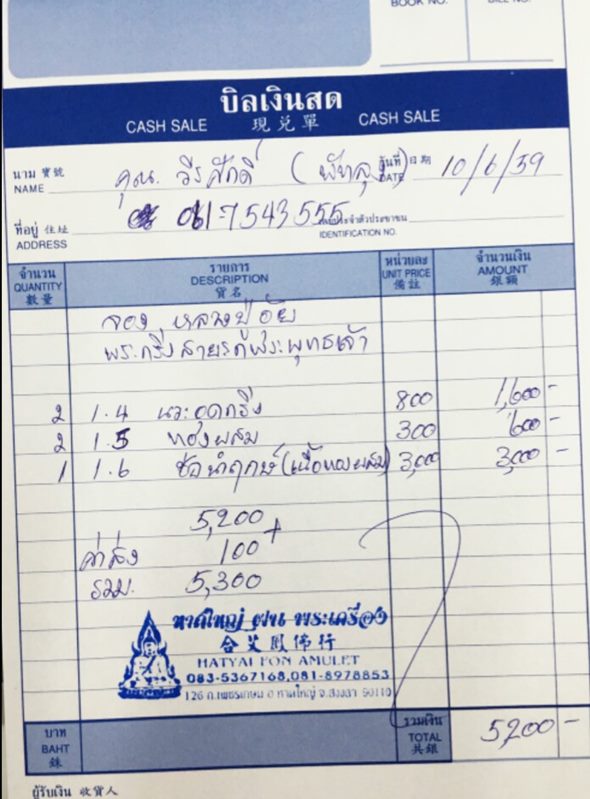 BOOK NO. BILL NO.
บิลเงินสด
CASH SALE 現兌單 CASH SALE
นาม 寶號 NAME คุณ วีรศักดิ์ (พัทลุง) วันที่ 日期 DATE 10/6/59
ที่อยู่ 住址 ADDRESS 061-7543555 ประจำตัวประชาชน IDENTIFICATION NO.
จำนวน QUANTITY 數量 รายการ DESCRIPTION 貨名 หน่วยละ UNIT PRICE 備註 จำนวนเงิน AMOUNT 銀額
จอง หลวงปู่
พระกริ่ง พระพุทธเจ้า
2 1.4 นวะอุดกริ่ง 800 1,600-
2 1.5 ทองผสม 300 600-
1 1.6 ช่อ นำฤกษ์ (เนื้อทองผสม) 3,000 3,000-
5,200 +
ค่าส่ง 100
รวม. 5,300
หาดใหญ่ ฝน พระเครื่อง
合艾鳳佛行
HATYAI FON AMULET
083-5367168,081-8978853
126 ถ.เพชรเกษม อ หาดใหญ่ จ.สงขลา 90110
บาท BAHT 銖 รวมเงิน TOTAL 共銀 5200-
ผู้รับเงิน 收貨人